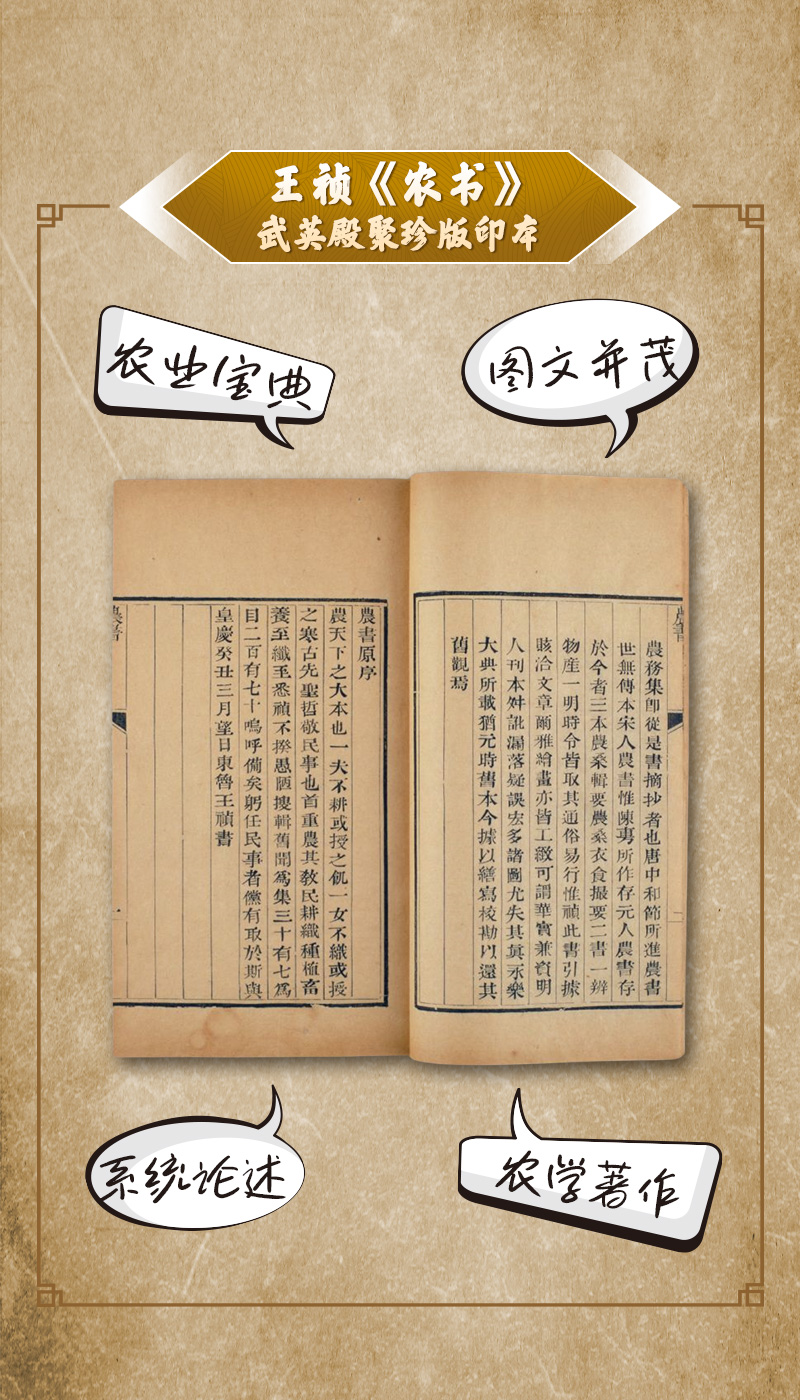 王祯《农书》
武英殿聚珍版印本
农业宝典
图文并茂
農務集卽從是書摘抄者也唐中和節所進農書
世無傳本宋人農書惟陳旉所作存元人農書存
於今者三本農桑輯要農桑衣食撮要二書一辨
物産一明時令皆取其通俗易行惟禎此書引據
賅洽文章爾雅繪畫亦皆工緻可謂華實兼資明
人刊本舛訛漏落疑誤宏多諸圖尤失其眞永樂
大典所載猶元時舊本今據以繕寫校勘以還其
舊觀焉
農書原序
農天下之大本也一夫不耕或授之飢一女不織或授
之寒古先聖哲敬民事也首重農其敎民耕織種植畜
養至纖至悉禎不揆愚陋搜輯舊聞爲集三十有七爲
目二百有七十嗚呼備矣躬任民事者儻有取於斯與
皇慶癸丑三月望日東魯王禎書
農書
系统论述
农学著作